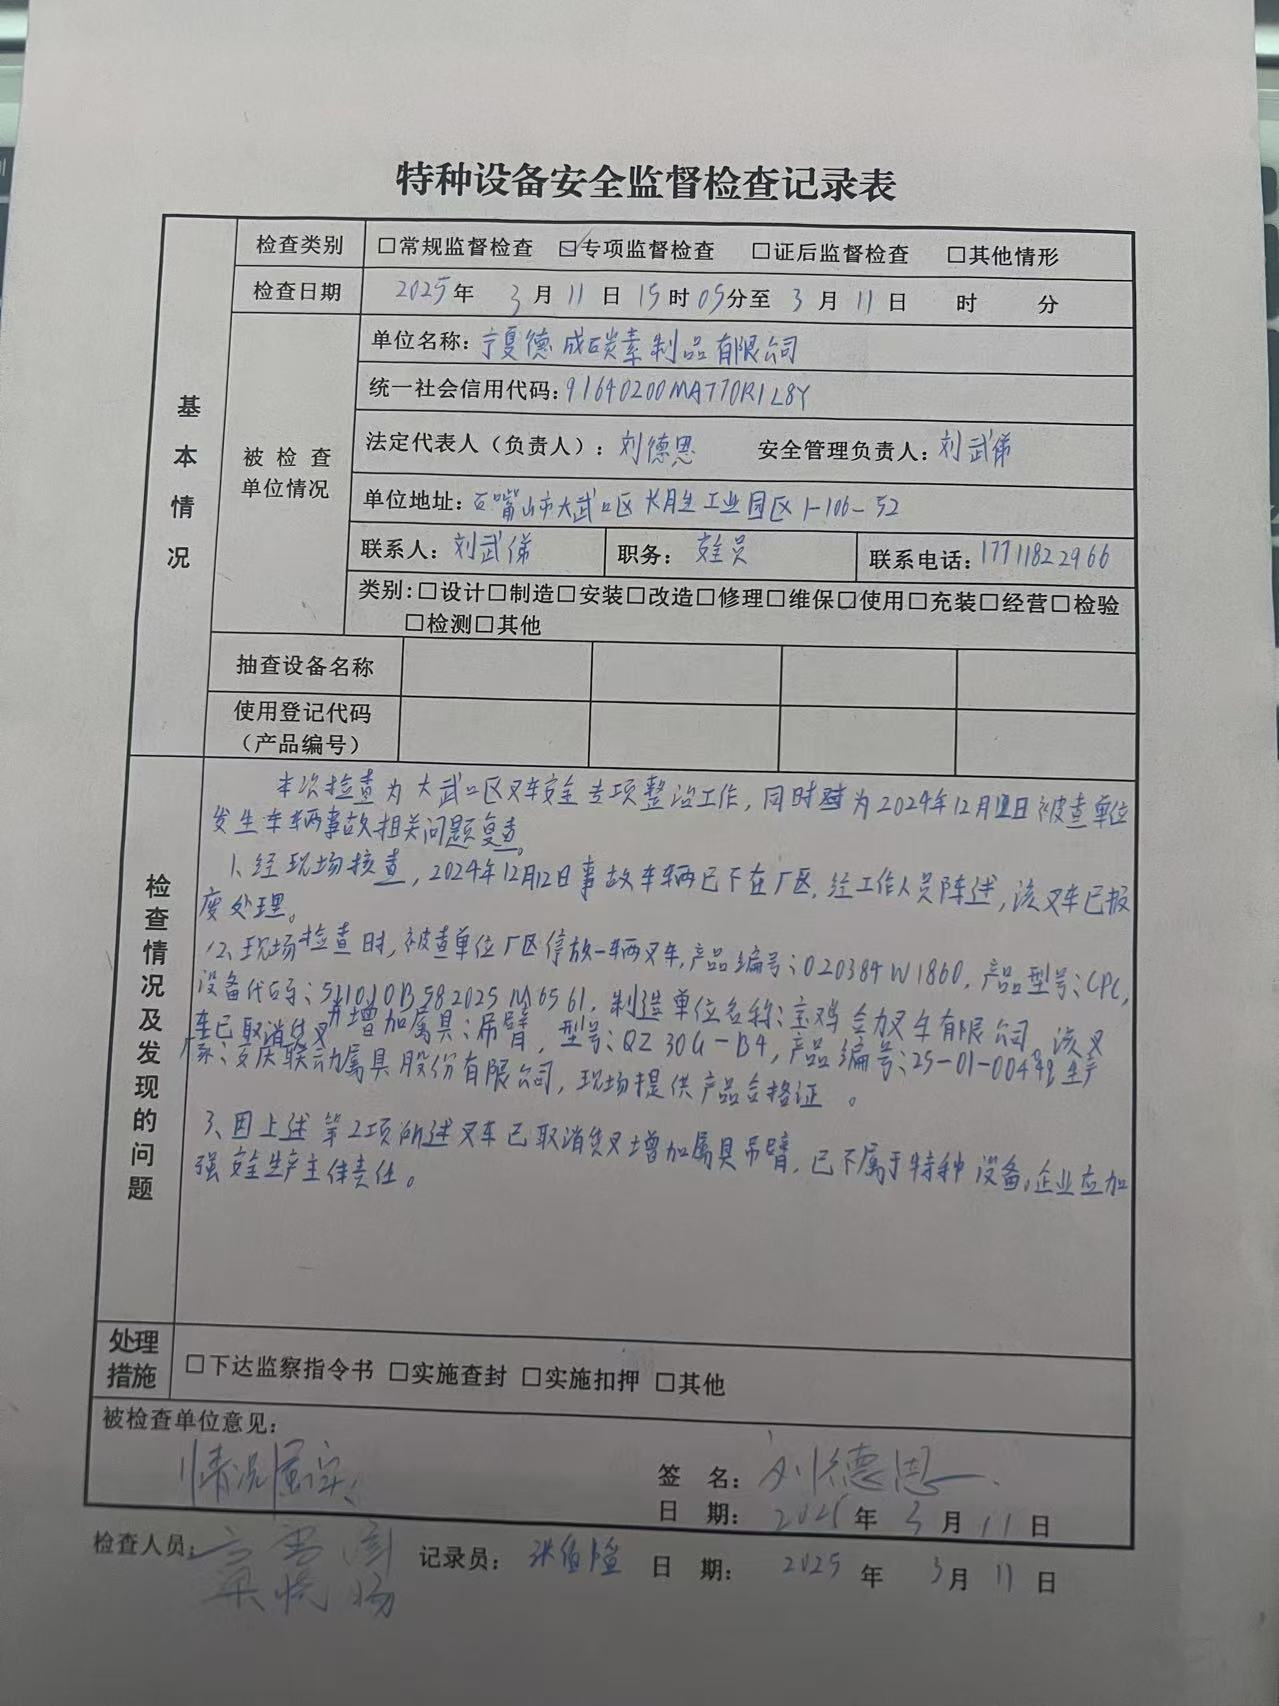 特种设备安全监督检查记录表
基本情况
检查类别 □常规监督检查 ☑专项监督检查 □证后监督检查 □其他情形
检查日期 2025年 3月11日15时05分至3月11日 时 分
被检查单位情况
单位名称：宁夏德成碳素制品有限公司
统一社会信用代码：91640200MA770R1L8Y
法定代表人（负责人）：刘德恩 安全管理负责人：刘武
单位地址：石嘴山市大武口区长胜工业园区1-106-52
联系人：刘武 职务：安全员 联系电话：17711822966
类别：□设计□制造□安装□改造□修理□维保☑使用□充装□经营□检验
□检测□其他
抽查设备名称
使用登记代码
（产品编号）
检查情况及发现的问题
本次检查为大武口区叉车安全专项整治工作，同时为2024年12月12日被查单位
发生车辆事故相关问题复查。
1、经现场核查，2024年12月12日事故车辆已不在厂区，经工作人员陈述，该叉车已报
废处理。
2、现场检查时，被查单位厂区停放一辆叉车，产品编号：020384W1860，产品型号：CPC，
设备代码：511010B582025M6561，制造单位名称：宝鸡合力叉车有限公司，该叉
车已取消货叉并增加属具：吊臂，型号：QZ30G-B4，产品编号：25-01-00449，生产
厂家：安庆联动属具股份有限公司，现场提供产品合格证。
3、因上述第2项所述叉车已取消货叉增加属具吊臂，已不属于特种设备，企业应加
强安全生产主体责任。
处理措施 □下达监察指令书 □实施查封 □实施扣押 □其他
被检查单位意见：
情况属实、
签 名：刘德恩
日 期：2025年 3月11日
检查人员： 记录员： 日 期： 2025年 3月11日